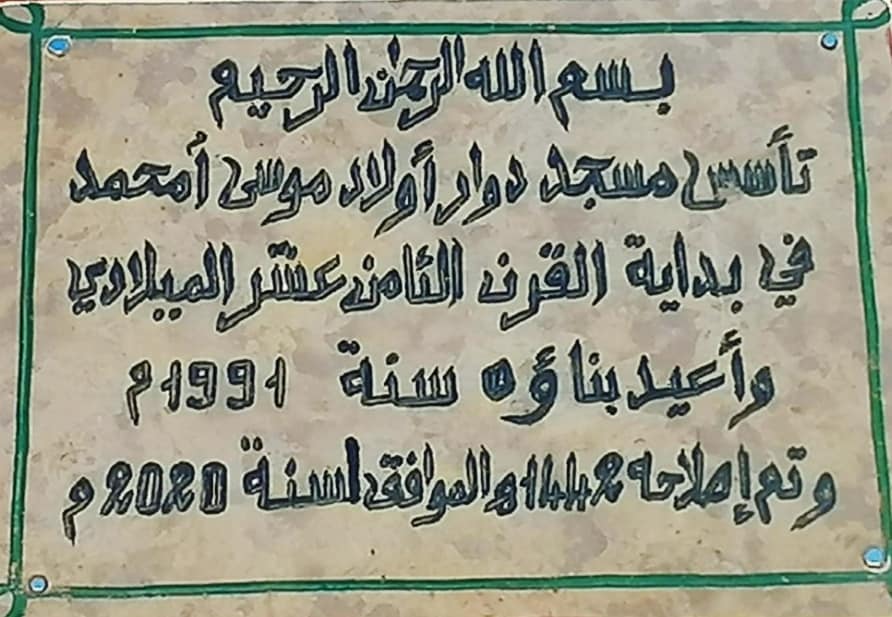 بسم الله الرحمان الرحيم
تأسس مسجد دوار أولاد موسى أُمحمد
في بداية القرن الثامن عشر الميلادي
وأعيد بناؤه سنة 1991م
وتم إصلاحه 1442ه الموافق لسنة 2020م